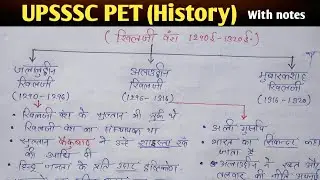 UPSSSC PET (History) With notes
( खिलजी वंश 1290ई-1320ई- )
जलालुद्दीन खिलजी
(1290-1296)
अलाउद्दीन खिलजी
(1296-1316)
मुबारकशाह खिलजी
(1316-1320)
खिलजी वंश के सुल्तान भी तुर्क थे
खिलजी वंश का संस्थापक था
सुल्तान कैकुबाद ने उसे शाइस्ता खाँ
की उपाधि दी
हिन्दू जनता के प्रति उदार दृष्टिकोण
अली गुर्शास्प
भारत का सिकन्दर कहा
जाता है
अलाउद्दीन ने
तलवार की नीति अपनाई